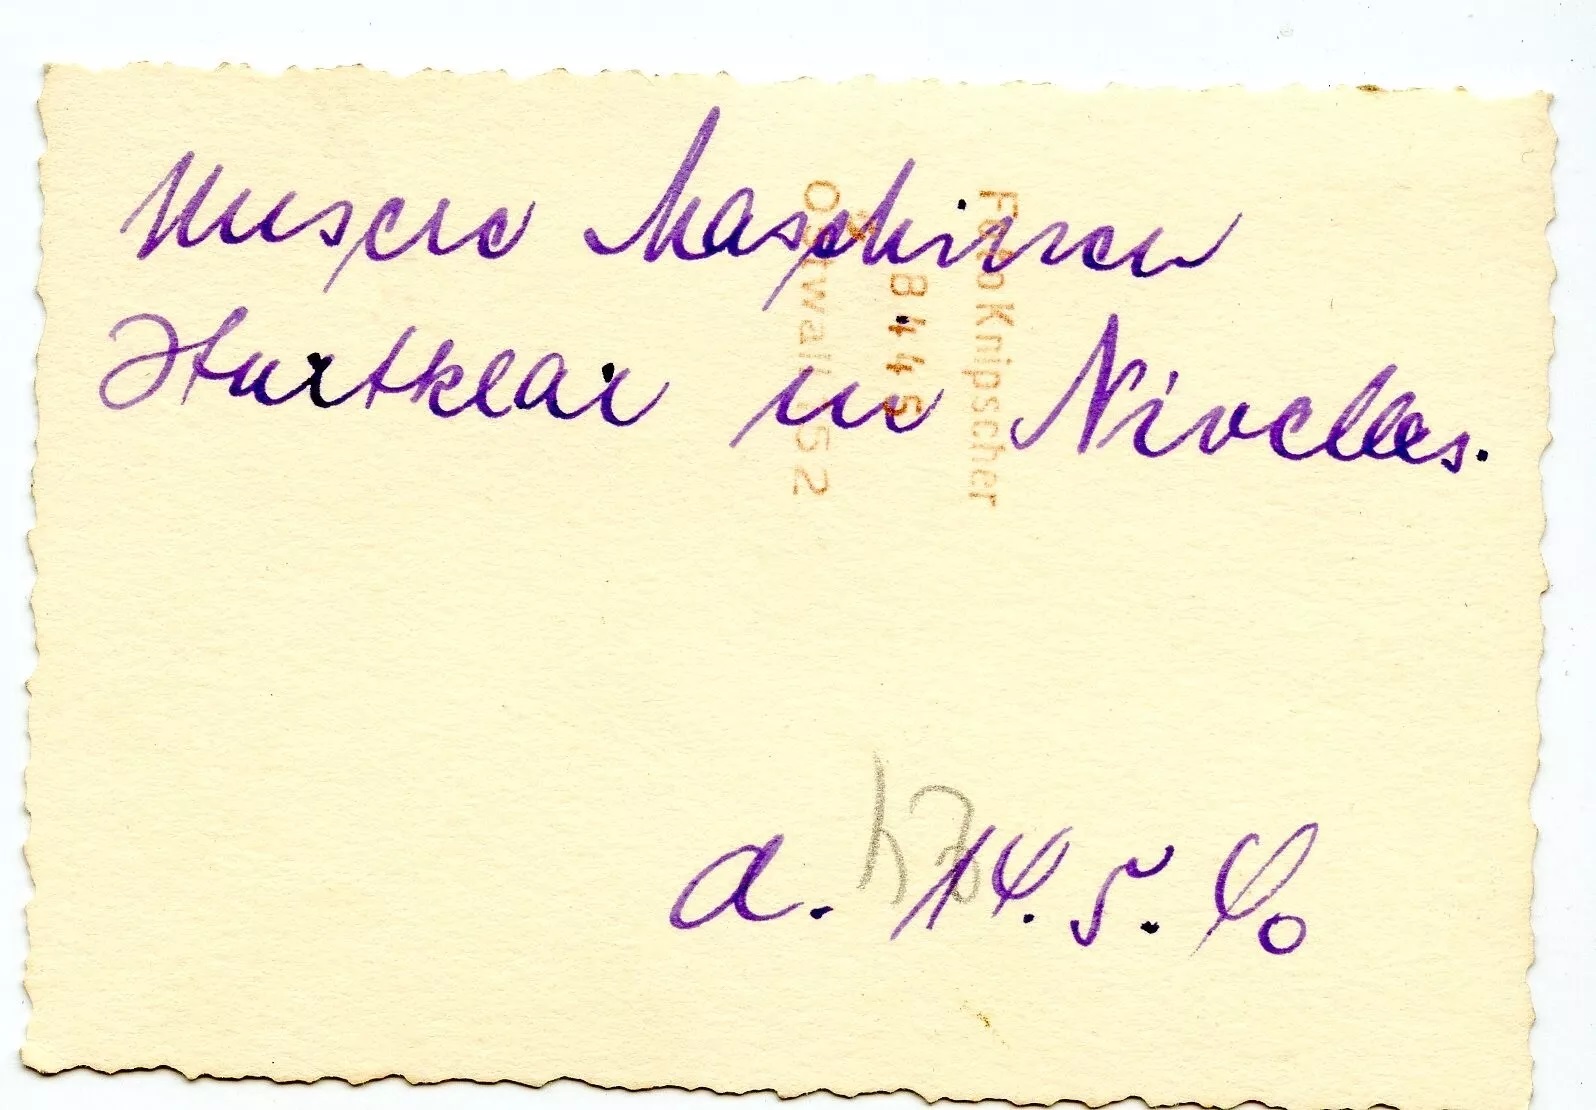 Unsere Maschinen
Startklar in Nivelles.
a. 14. 5. 40
Foto Knipscher
28445
Ostwall 152